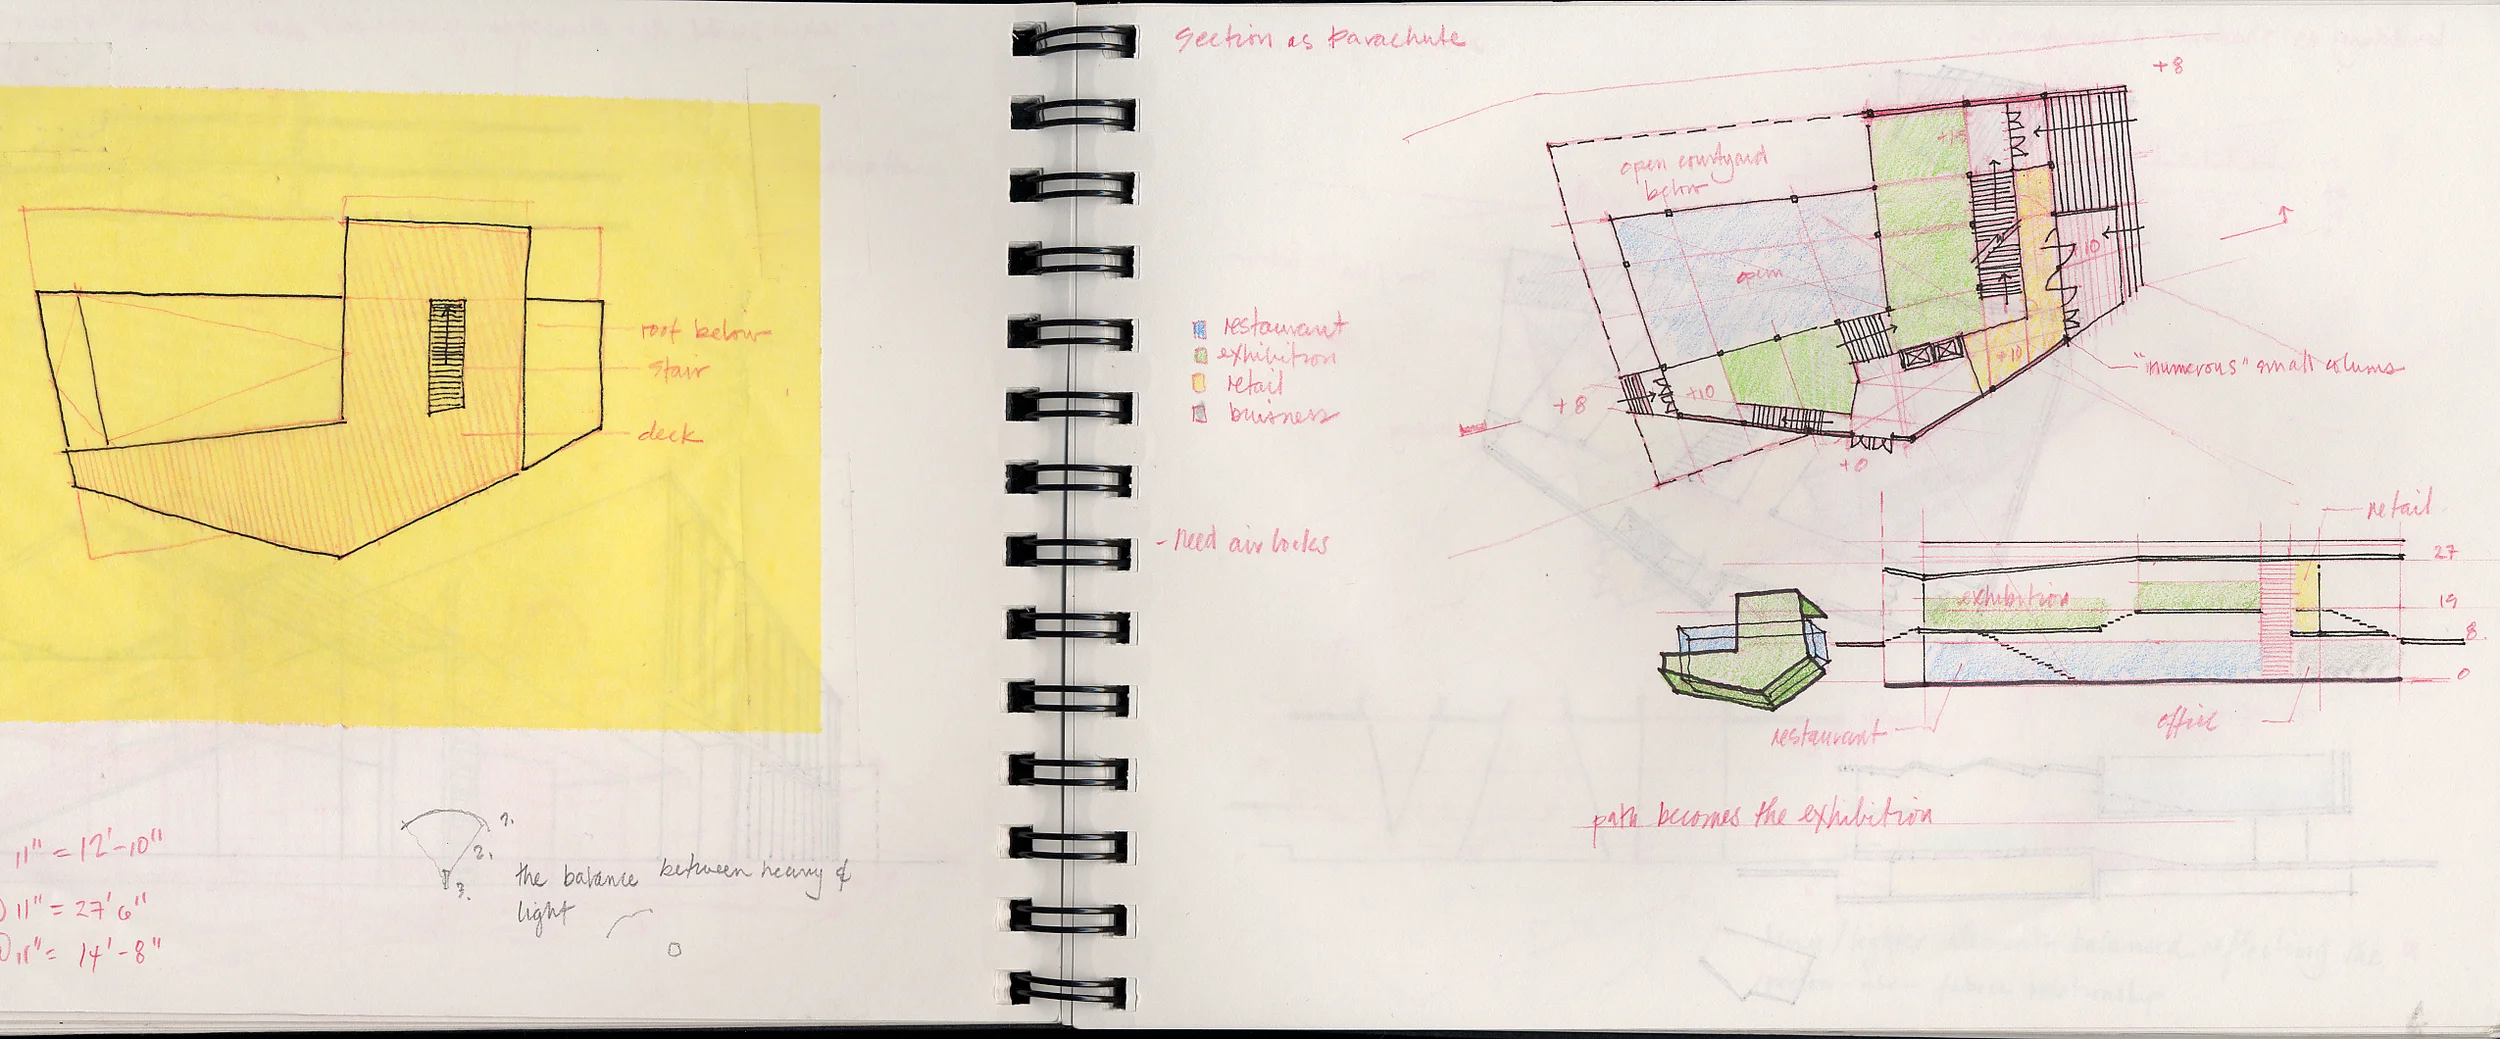 roof below
stair
deck
11" = 12'-10"
11" = 27'6"
11" = 14'-8"
1.
2.
3.
the balance between heavy &
light
Section as Parachute
+8
open courtyard
below
+15
open
+10
restaurant
exhibition
retail
buisness
+10
+10
+8
+0
"numerous" small colums
- Need air locks
retail
27
exhibition
19
8
0
restaurant
office
path becomes the exhibition